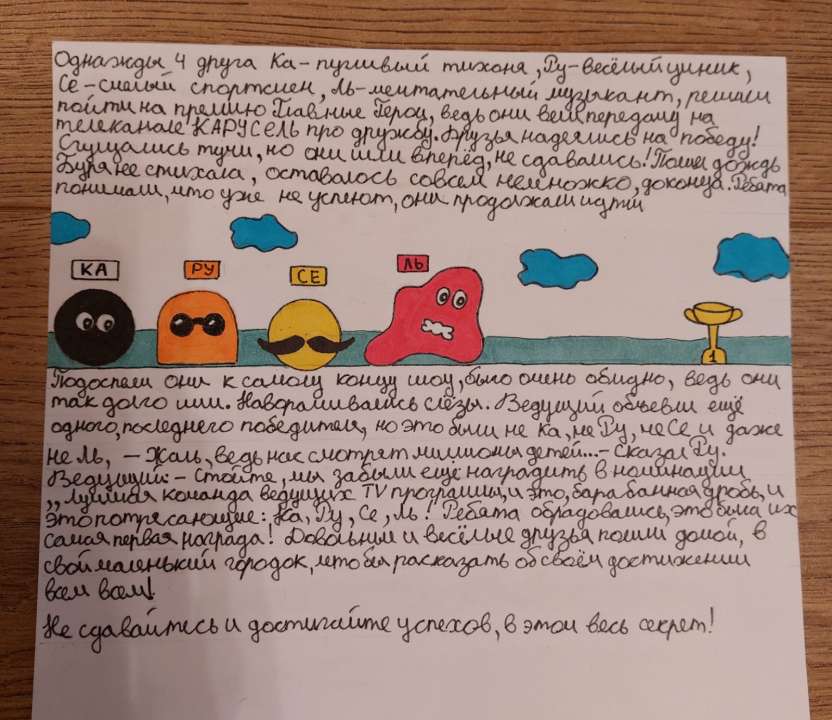 Однажды 4 друга Ка-пугливый тихоня, Ру-весёлый циник,
Се-смелый спортсмен, Ль-мечтательный музыкант, решили
пойти на премию Главные Герои, ведь они вели передачу на
телеканале КАРУСЕЛЬ про дружбу. Друзья надеялись на победу!
Сгущались тучи, но они шли вперёд, не сдавались! Пошёл дождь
Буря не стихала, оставалось совсем немножко, до конца. Ребята
понимали, что уже не успеют, они продолжали идти
КА РУ СЕ ЛЬ
1
Подоспели они к самому концу шоу, было очень обидно, ведь они
так долго шли. Наворачивались слёзы. Ведущий объевил ещё
одного, последнего победителя, но это были не Ка, не Ру, не Се и даже
не Ль, – Жаль, ведь нас смотрят миллионы детей...– Сказал Ру.
Ведущий:– Стойте, мы забыли ещё наградить в номинации
,,Лучшая команда ведущих TV программ, и это, барабанная дробь, и
это потрясающие: Ка, Ру, Се, Ль! Ребята обрадовались, это была их
самая первая награда! Довольные и весёлые друзья пошли домой, в
свой маленький городок, что бы расказать об своём достижении
всем всем!
Не сдавайтесь и достигайте успехов, в этом весь секрет!